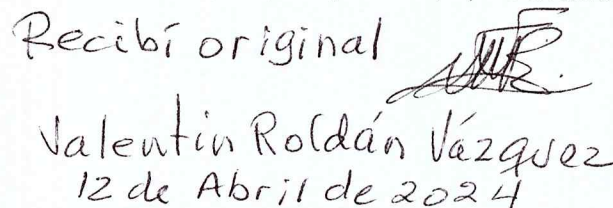 Recibí original
Valentin Roldán Vázquez
12 de Abril de 2024